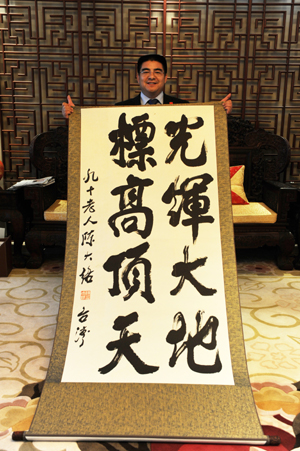 光輝大地
標高頂天
九十老人陳
台灣